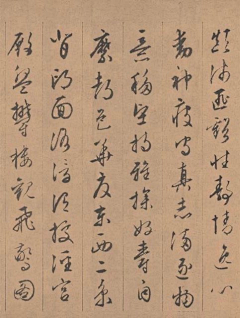 顛沛匪虧性靜情逸心
動神疲守真志滿逐物
意移堅持雅操好爵自
縻都邑華夏東西二京
背邙面洛浮渭據涇宮
殿盤鬱樓觀飛驚圖